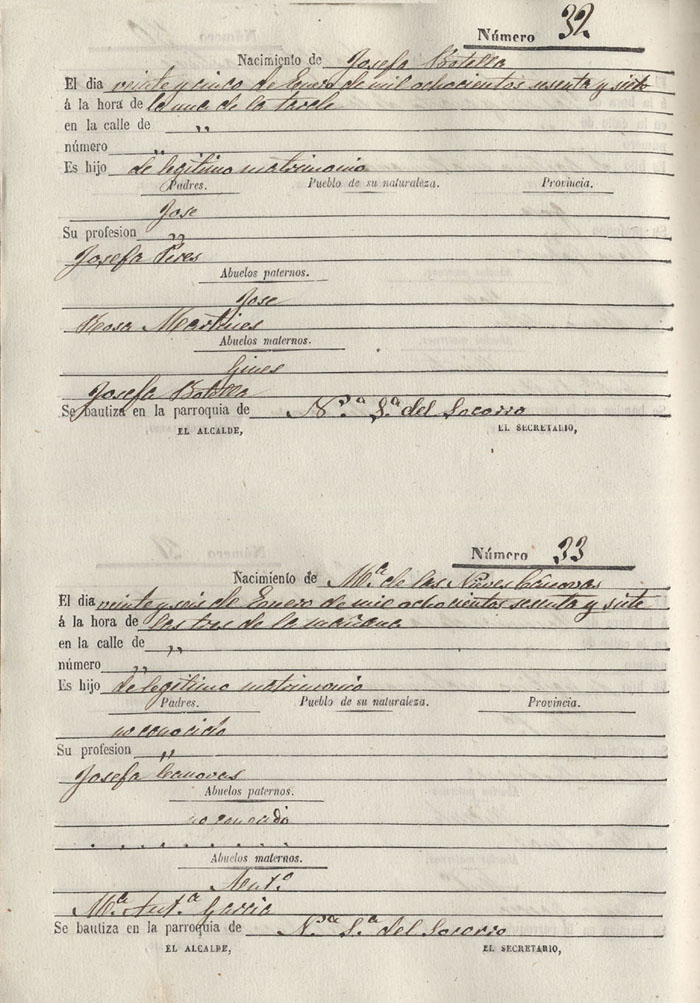 Número 32
Nacimiento de Josefa Botella
El dia veinte y cinco de Enero de mil ochocientos sesenta y siete
á la hora de la una de la tarde
en la calle de „
número „
Es hijo de legitimo matrimonio
Padres. Pueblo de su naturaleza. Provincia.
Jose
Su profesion „
Josefa Pires
Abuelos paternos.
Jose
Rosa Martines
Abuelos maternos.
Gines
Josefa Botella
Se bautiza en la parroquia de N.ra S.a del Socorro
EL ALCALDE, EL SECRETARIO,
Número 33
Nacimiento de M.a de las Nieves Cánovas
El dia veinte y seis de Enero de mil ochocientos sesenta y siete
á la hora de las tres de la mañana
en la calle de „
número „
Es hijo de legitimo matrimonio
Padres. Pueblo de su naturaleza. Provincia.
no conocido
Su profesion „
Josefa Canovas
Abuelos paternos.
no conocido
. . . . . . . .
Abuelos maternos.
M.a Ant.a Garcia
Se bautiza en la parroquia de N.ra S.a del Socorro
EL ALCALDE, EL SECRETARIO,